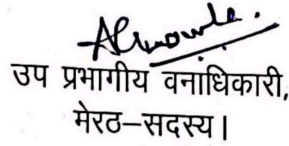 उप प्रभागीय वनाधिकारी,
मेरठ–सदस्य।